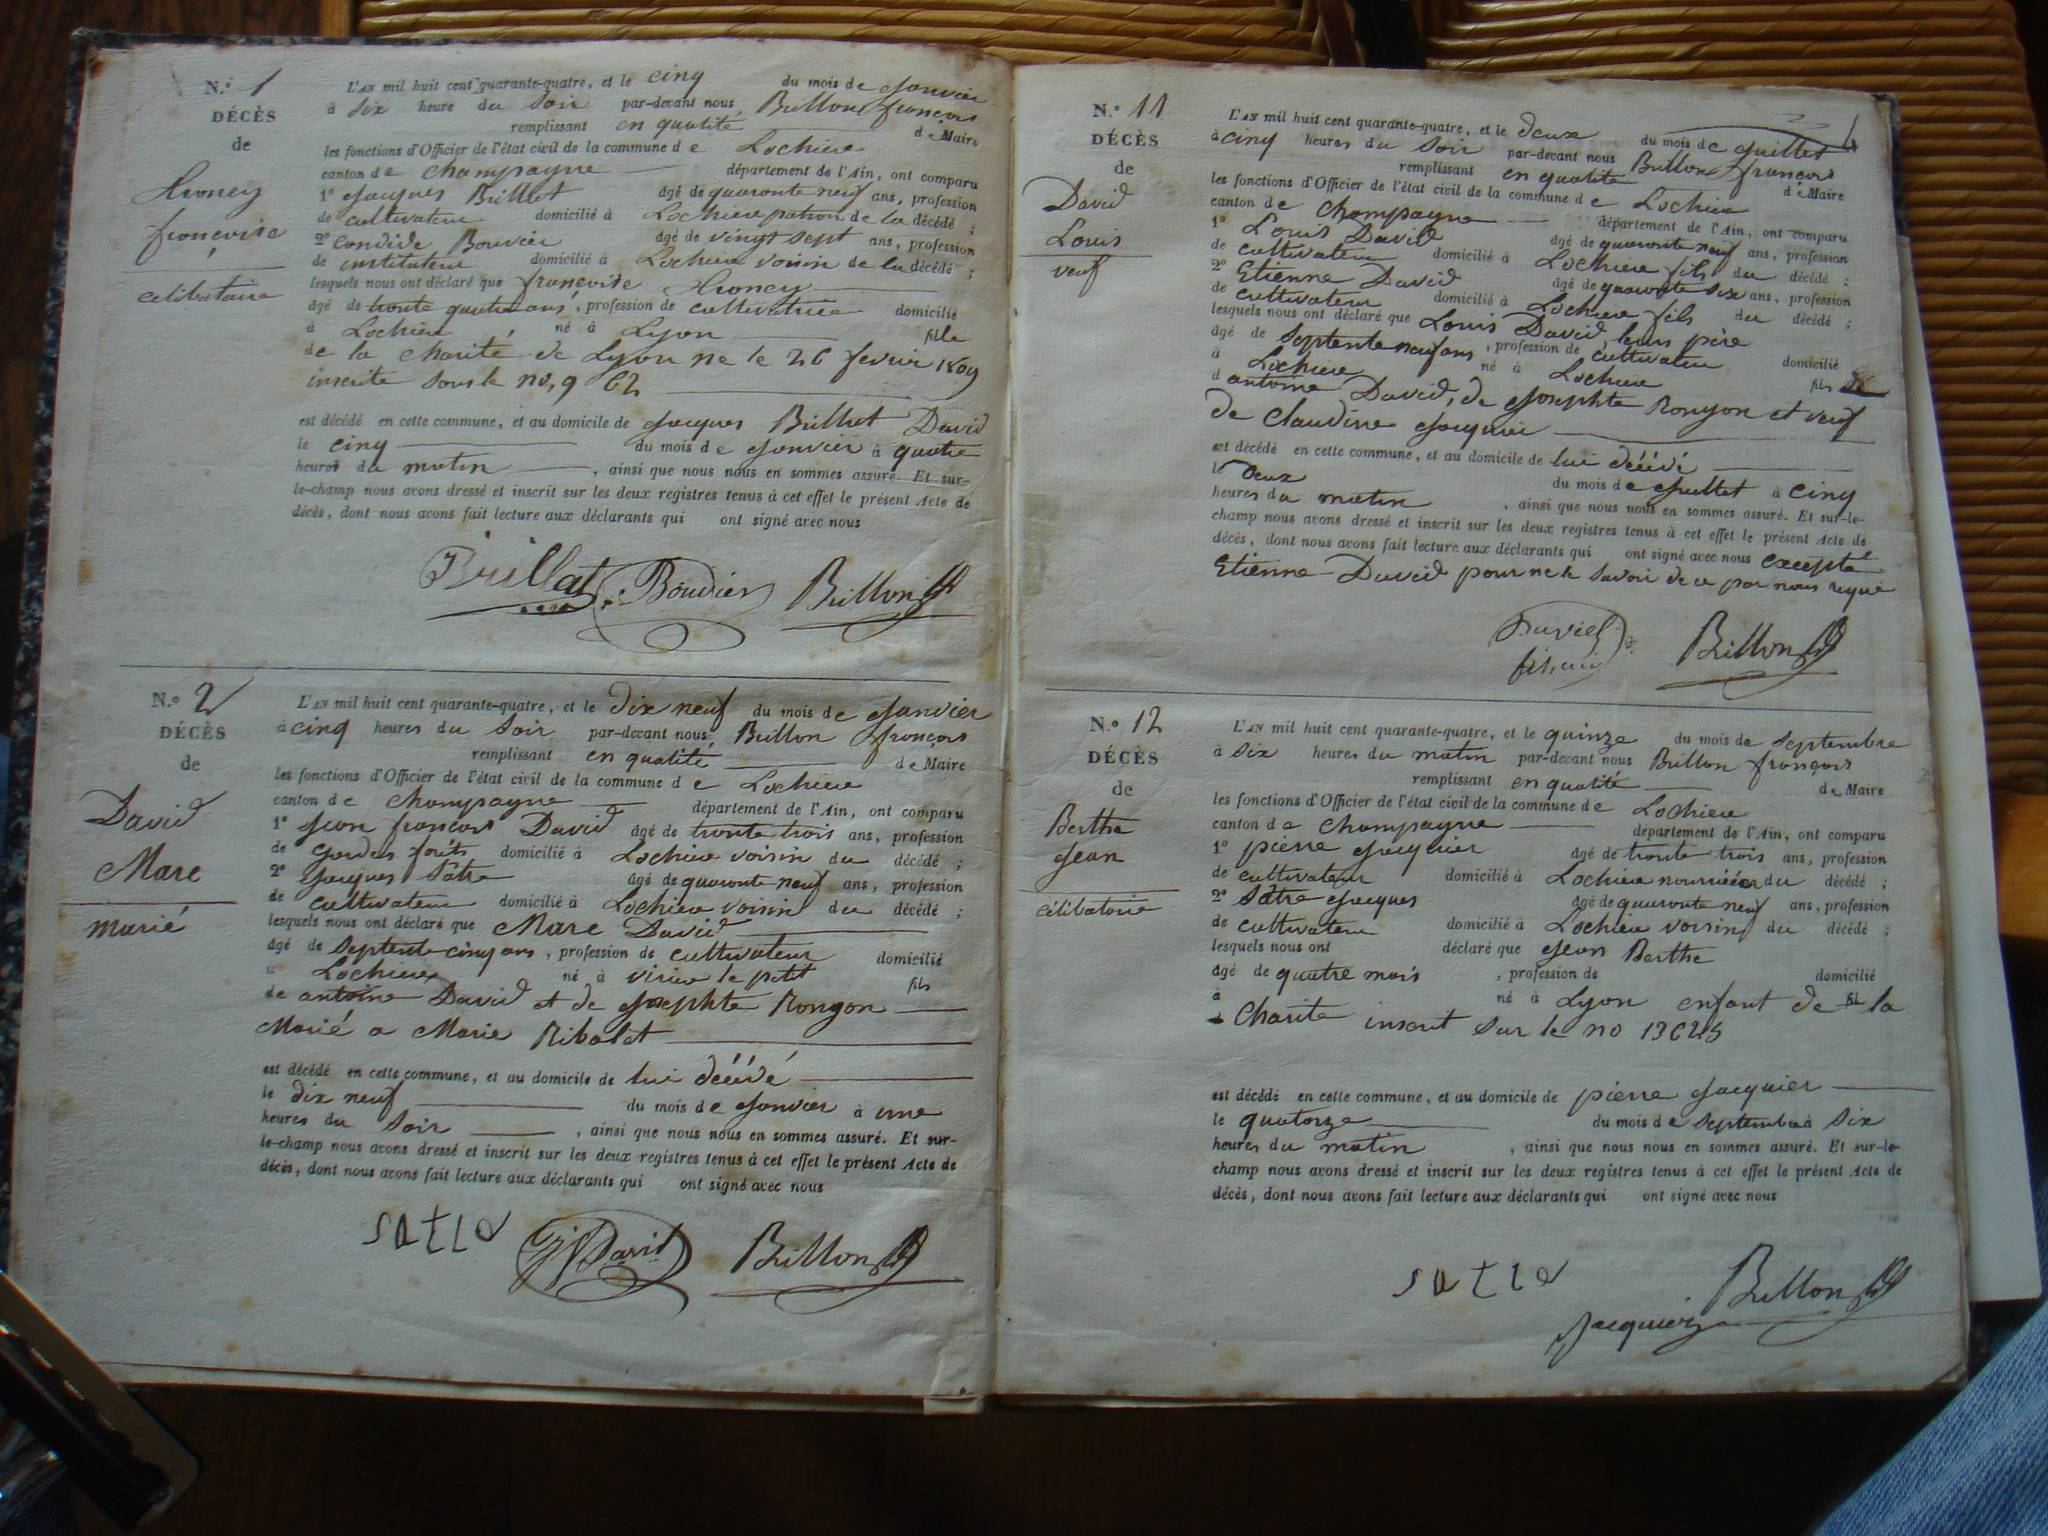 N.° 1
DÉCÈS
de
françoise
célibataire
L'AN mil huit cent quarante-quatre, et le cinq du mois de Janvier
à Six heure du Soir par-devant nous Brillon françois
remplissant en qualité de Maire
les fonctions d'Officier de l'état civil de la commune de Lochieu
canton de Champagne département de l'Ain, ont comparu
1° Jacques Brillat âgé de quaronte neuf ans, profession
de cultivateur domicilié à Lochieu patron de la décédé ;
2° condide Bouvier âgé de vingt sept ans, profession
de instituteur domicilié à Lochieu voisin de la décédé ;
lesquels nous ont déclaré que françoise
âgé de tronte quatre ans, profession de cultivatrice domicilié
à Lochieu, né à Lyon fille
de la charité de Lyon ne le 26 fevrier 1809
inscrite sous le no, 9 62
est décédé en cette commune, et au domicile de Jacques Brillat David
le cinq du mois de Janvier à quatre
heures du matin, ainsi que nous nous en sommes assuré. Et sur-
le-champ nous avons dressé et inscrit sur les deux registres tenus à cet effet le présent Acte de
décès, dont nous avons fait lecture aux déclarants qui ont signé avec nous
Brillat Bouvier Brillon
N.° 2
DÉCÈS
de
David
Marc
marié
L'AN mil huit cent quarante-quatre, et le dix neuf du mois de Janvier
à cinq heures du Soir par-devant nous Brillon françois
remplissant en qualité de Maire
les fonctions d'Officier de l'état civil de la commune de Lochieu
canton de Champagne département de l'Ain, ont comparu
1° Jean françois David âgé de tronte trois ans, profession
de Gardes forêts domicilié à Lochieu voisin du décédé ;
2° Jacques Sâtre âgé de quaronte neuf ans, profession
de cultivateur domicilié à Lochieu voisin du décédé ;
lesquels nous ont déclaré que Marc David
âgé de Septente cinq ans, profession de cultivateur domicilié
à Lochieu né à virieu le petit fils
de antoine David et de Josephte Rongon
Marié a Marie Ribolet
est décédé en cette commune, et au domicile de lui déédé
le dix neuf du mois de Janvier à une
heures du Soir, ainsi que nous nous en sommes assuré. Et sur-
le-champ nous avons dressé et inscrit sur les deux registres tenus à cet effet le présent Acte de
décès, dont nous avons fait lecture aux déclarants qui ont signé avec nous
satre J f David Brillon
N.° 11
DÉCÈS
de
David
Louis
veuf
L'AN mil huit cent quarante-quatre, et le deux du mois de Juillet
à cinq heures du Soir par-devant nous Brillon françois
remplissant en qualité de Maire
les fonctions d'Officier de l'état civil de la commune de Lochieu
canton de Champagne département de l'Ain, ont comparu
1° Louis David âgé de quaronte neuf ans, profession
de cultivateur domicilié à Lochieu fils du décédé ;
2° Etienne David âgé de quaronte six ans, profession
de cultivateur domicilié à Lochieu fils du décédé ;
lesquels nous ont déclaré que Louis David, leur père
âgé de Septente neuf ans, profession de cultivateur domicilié
à Lochieu né à Lochieu fils de
d antoine David, de Josephte Rongon et veuf
de Claudine Jacquier
est décédé en cette commune, et au domicile de lui déédé
le Deux du mois de Juillet à cinq
heures du matin, ainsi que nous nous en sommes assuré. Et sur-le-
champ nous avons dressé et inscrit sur les deux registres tenus à cet effet le présent Acte de
décès, dont nous avons fait lecture aux déclarants qui ont signé avec nous excepté
Etienne David pour ne le savoir de ce par nous requi
David Brillon
N.° 12
DÉCÈS
de
Berthe
Jean
célibataire
L'AN mil huit cent quarante-quatre, et le quinze du mois de Septembre
à Six heures du matin par-devant nous Brillon françois
remplissant en qualité de Maire
les fonctions d'Officier de l'état civil de la commune de Lochieu
canton de Champagne département de l'Ain, ont comparu
1° pierre Jacquier âgé de tronte trois ans, profession
de cultivateur domicilié à Lochieu nourricier du décédé ;
2° Sâtre Jacques âgé de quaronte neuf ans, profession
de cultivateur domicilié à Lochieu voisin du décédé ;
lesquels nous ont déclaré que Jean Berthe
âgé de quatre mois, profession de domicilié
à né à Lyon enfant de fil la
Charite inscrit sur le no 13625
est décédé en cette commune, et au domicile de pierre Jacquier
le quatorze du mois de Septembre à Six
heures du matin, ainsi que nous nous en sommes assuré. Et sur-le-
champ nous avons dressé et inscrit sur les deux registres tenus à cet effet le présent Acte de
décès, dont nous avons fait lecture aux déclarants qui ont signé avec nous
satre Brillon
Jacquier